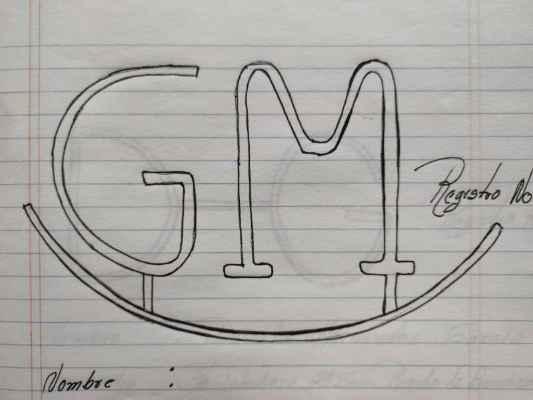 GM
Registro No
Nombre :